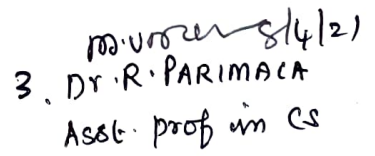 8/4/21
3. Dr. R. PARIMALA
Asst. prof in CS